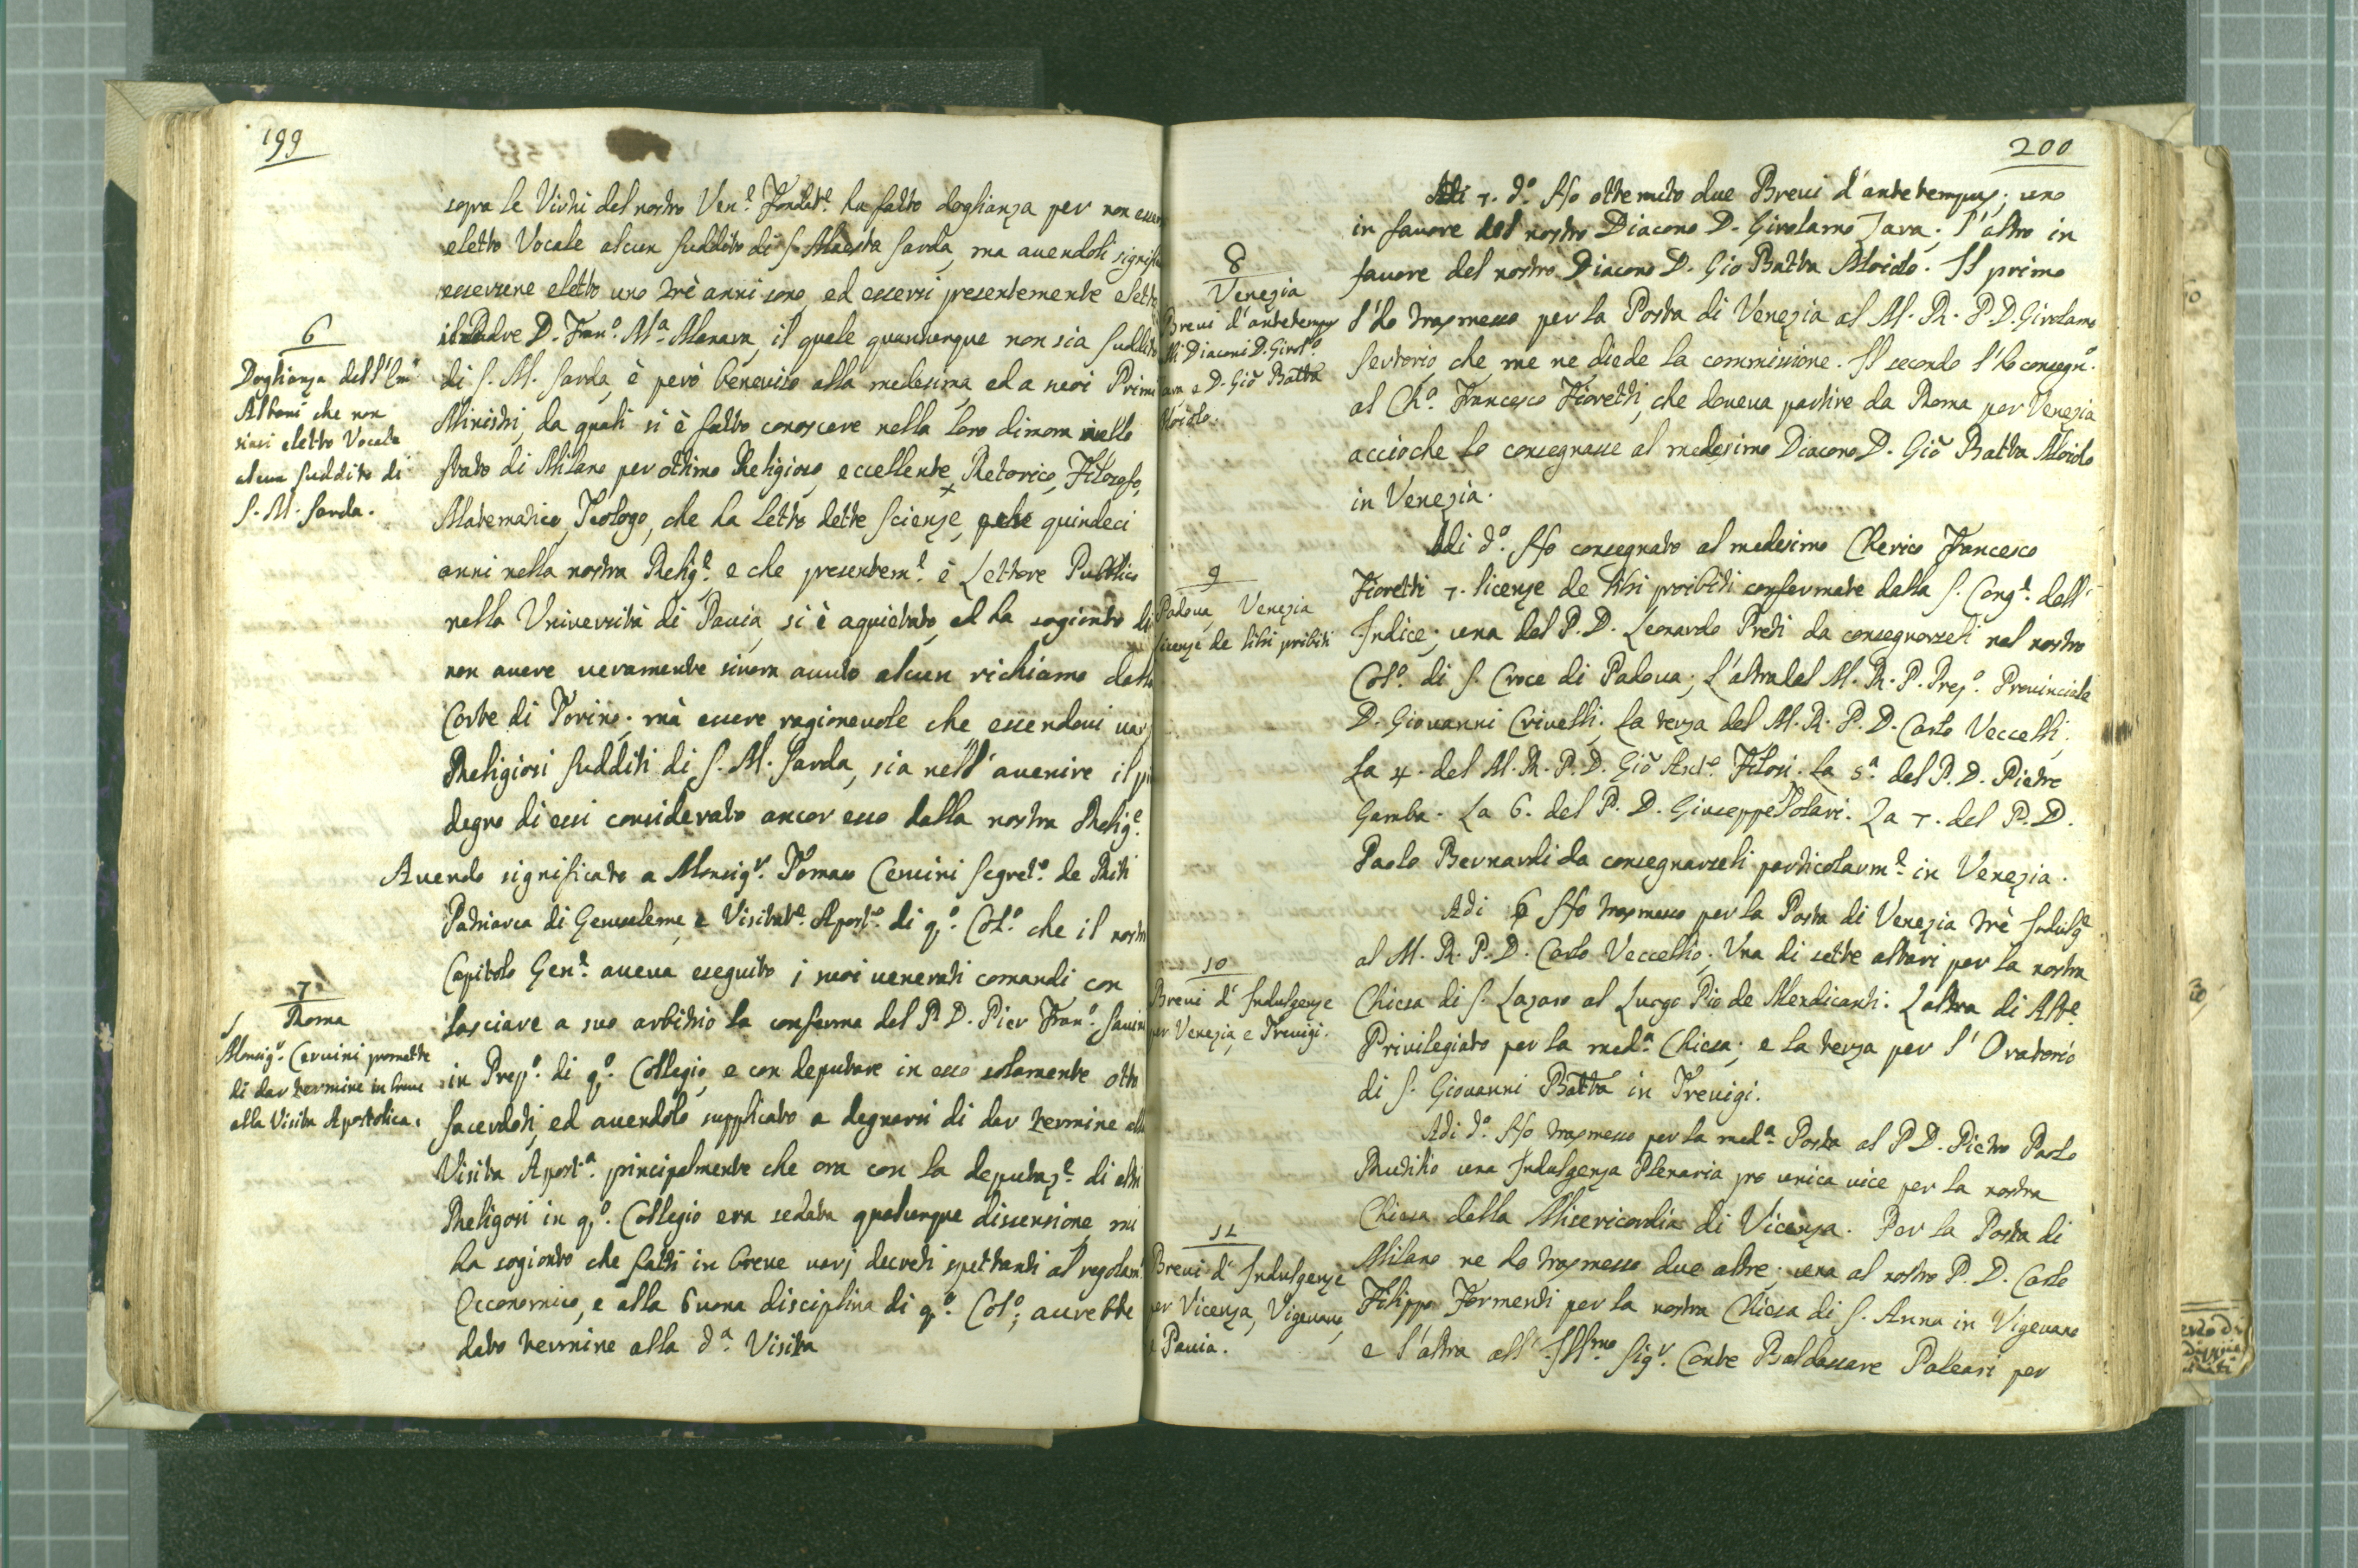 199
sopra le Virtù del nostro Ven.e Fondat.e ha fatto doglianza per non
eletto Vocale alcun suddito di S. Maestà Sarda, ma avendoli
esservene eletto uno trè anni sono, ed essersi presentemente
Padre D. Fran.o M.a Manara, il quale quantunque non sia
di S. M. Sarda, è però beneviso alla medesima, ed a suoi
Ministri, da quali si è fatto conoscere nella loro dimora nello
stato di Milano per ottimo Religioso, eccellente Retorico, Filosofo,
Matematico, Teologo, che ha letto dette scienze, quindeci
anni nella nostra Relig.e e che presentem.e è Lettore Publico
nella Università di Pavia, si è aquietato, ed ha sogionto di
non avere veramente sinora avuto alcun richiamo
Corte di Torino; mà essere ragionevole che essendovi
Religiosi sudditi di S. M. Sarda, sia nell'avenire il
degno di essi considerato ancor esso dalla nostra Relig.e
6
Doglianza dell'Em
Albani che non
siasi eletto Vocale
alcun suddito di
S. M. Sarda.
Avendo significato a Monsig.r Tomaso Cervini Segret.o de Riti
Patriarca di Gerusaleme, e Visitat.e Apost.o di q.o Col.o che il
Capitolo Gen.e aveva eseguito i suoi venerati comandi con
lasciare a suo arbitrio la conferma del P. D. Pier Fran.o
in Prep.o di q.o Collegio, e con deputare in esso solamente otto
sacerdoti, ed avendolo supplicato a degnarsi di dar termine
Visita Apost.a principalmente che ora con la deputaz.e di
Religosi in q.o Collegio era sedata qualunque dissensione, mi
ha sogionto che fatti in breve varj decreti spettanti al
Oeconomico, e alla buona disciplina di q.o Col.o; avrebbe
dato termine alla d.a Visita
7
Roma
Monsig.r Cervini promette
di dar termine in breve
alla Visita Apostolica.
200
Adi 7. d.o Ho ottenuto due Brevi d'antetempus; uno
in favore del nostro Diacono D. Girolamo Java; l'altro in
favore del nostro Diacono D. Gio Batta Moiolo. Il primo
l'ho trasmesso per la Posta di Venezia al M. R. P. D. Girolamo
Sertorio, che me ne diede la commissione. Il secondo l'ho consegn.o
al Ch.o Francesco Fioretti, che doveva partire da Roma per Venezia
accioche lo consegnasse al medesimo Diacono D. Gio Batta Moiolo
in Venezia.
8
Venezia
Brevi d'antetempus
Diaconi D. Girol.o
e D. Gio Batta
Moiolo.
Adi d.o Ho consegnato al medesimo Cherico Francesco
Fioretti 7. licenze de libri proibiti confermate dalla S. Cong.e dell'
Indice; una del P. D. Leonardo Preti da consegnarseli nel nostro
Col.o di S. Croce di Padova; L'altra del M. R. P. Prep.o Provinciale
D. Giovanni Crivelli; La terza del M. R. P. D. Carlo Veccelli;
La 4. del M. R. P. D. Gio Ant.o Filosi. La 5.a del P. D. Pietro
Gamba. La 6. del P. D. Giuseppe Solari. La 7. del P. D.
Paolo Bernardi da consegnarseli particolarm.e in Venezia.
9
Padova, Venezia
licenze de libri proibiti
Adi 6 Ho trasmesso per la Posta di Venezia trè Indulg.e
al M. R. P. D. Carlo Veccellio; Una di sette altari per la nostra
Chiesa di S. Lazaro al Luogo Pio de Mendicanti. L'altra di Alt.e
Privilegiato per la med.a Chiesa; e la terza per l'Oratorio
di S. Giovanni Batta in Trevigi.
10
Brevi d'Indulgenze
per Venezia, e Trevigi.
Adi d.o Ho trasmesso per la med.a Posta al P. D. Pietro Paolo
Rutilio una Indulgenza Plenaria pro unica vice per la nostra
Chiesa della Misericordia di Vicenza. Per la Posta di
Milano ne ho trasmesso due altre; una al nostro P. D. Carlo
Filippo Formenti per la nostra Chiesa di S. Anna in Vigevano
e l'altra all'Ill.mo Sig.r Conte Baldassare Paleari per
11
Brevi d'Indulgenze
per Vicenza, Vigevano,
e Pavia.